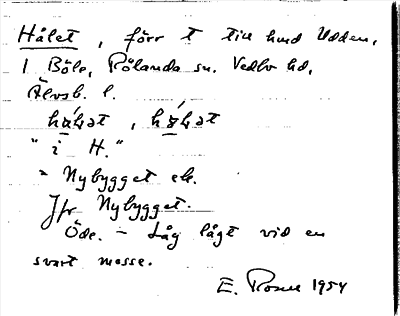 Hålet, förr t till hund Udden,
1 Böle, Rölanda sn. Vedbo hd,
Älvsb. l.
hålət, hålət
" i H."
= Nybygget ek.
Jfr Nybygget.
Öde. - Låg lågt vid en
svart mosse.
E. Rosell 1954